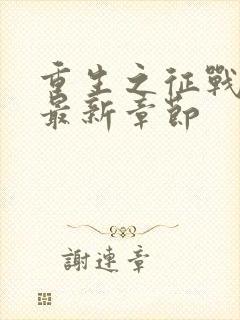 重生之征戰
最新章節
謝連章